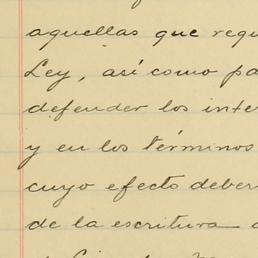 aquellas que requ
Ley, así como pa
defender los inter
y en los términos
cuyo efecto deber
de la escritura